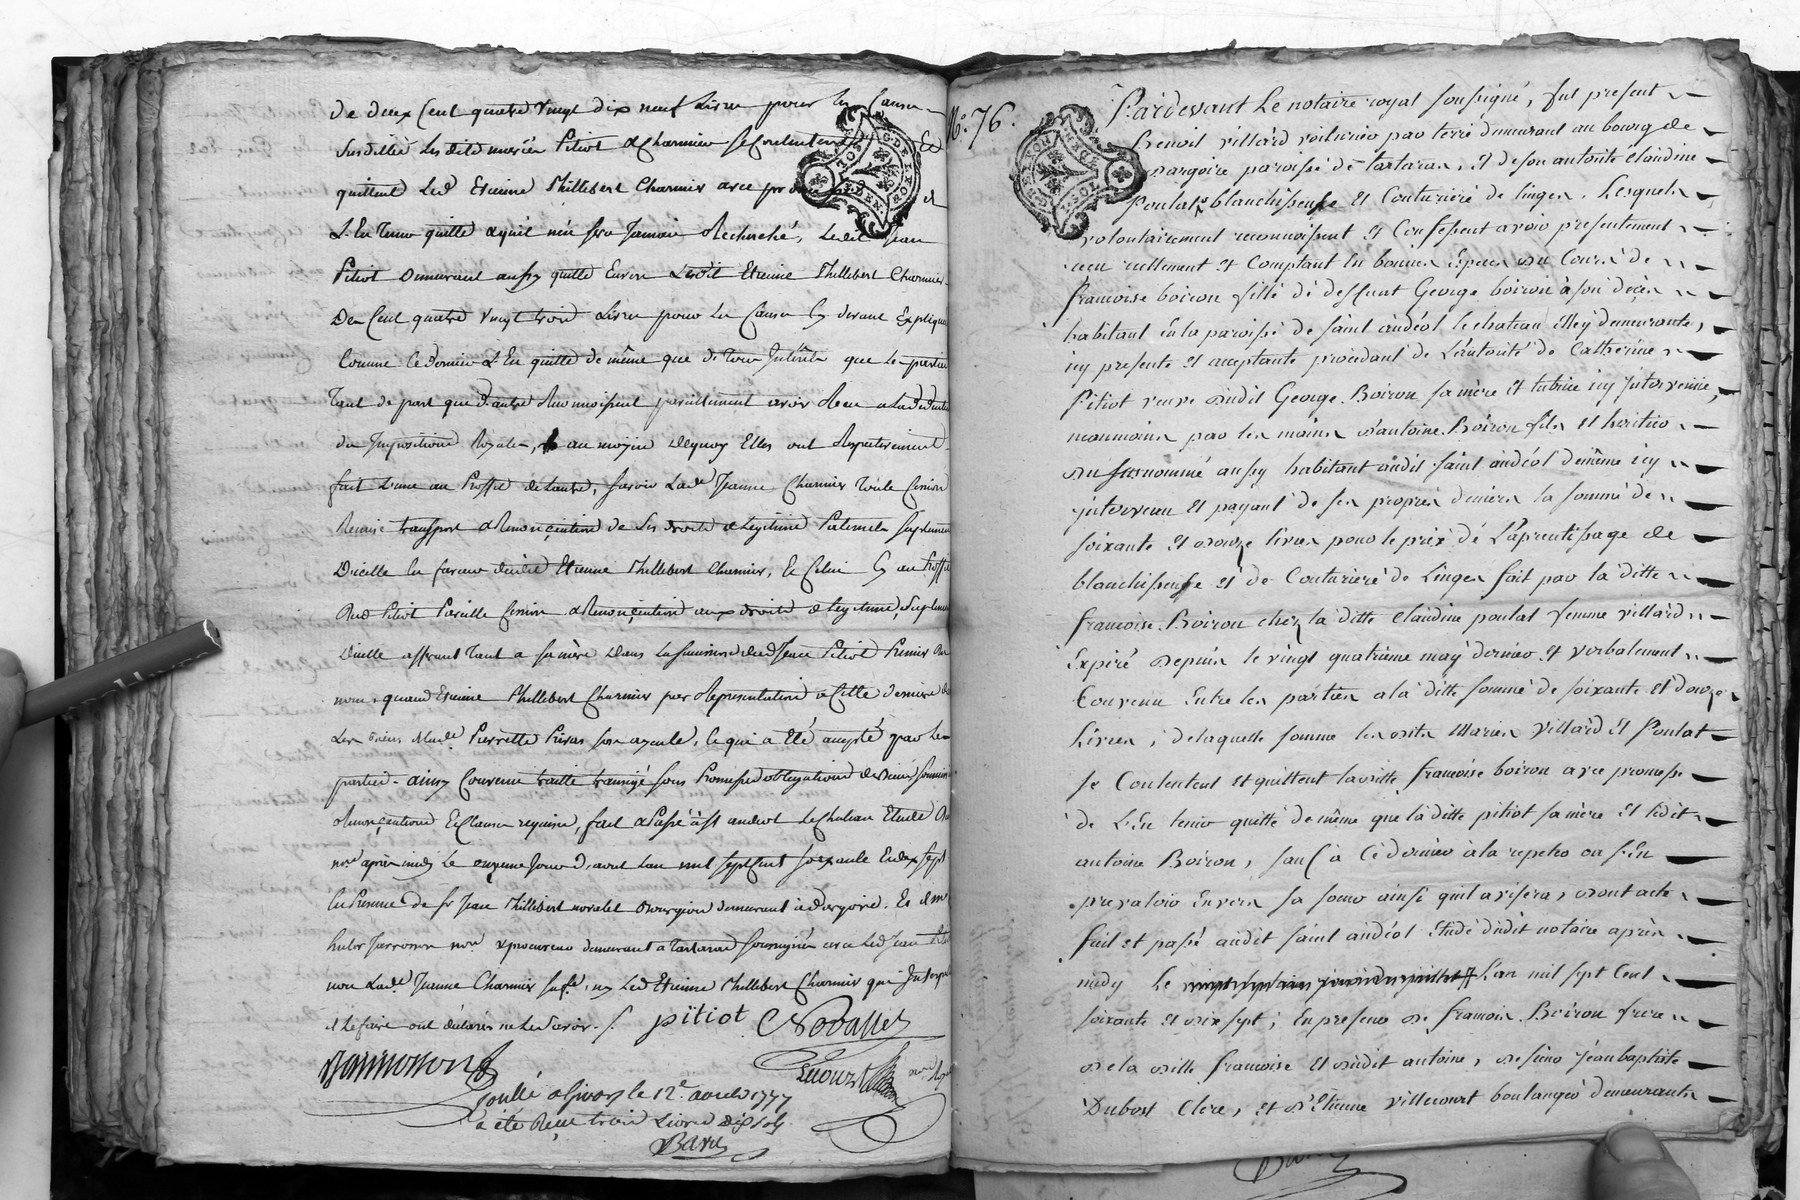 de deux Cent quatre vingt dix neuf Livres pour les Causes
susdittes Lesdits mariés Pitiot & Charmier se Contentent Et
quittent Led Etienne Phillebert Charmier avec promesse de
L'En Tenir quitte a quil n'en sera Jamais Recherché, Ledit Jean
Pitiot Demeurant aussy quitte Envers Ledit Etienne Phillebert Charmier
De Cent quatre vingt trois Livres pour les Causes Cy devant Expliquées
Comme Ce dernier L'En quitte de même que de Tous Intérêts que les parties
Tant de part que d'autre Reconnoissent pareillement avoir Reçu a La déduction
des Impositions Royales, au moyen dequoy Elles ont Respectivement
fait L'une au Proffit de Lautre, savoir Lade Jeanne Charmier Toute Cession
Remise transport & Renonciation de Ses droits de Legitime Paternels suplement
Dicelle En faveur dudit Etienne Phillebert Charmier, Et Celui Cy au Proffit
Dud Pitiot Pareille Cession & Renonciation aux droits de Legitime, Suplement
Dicelle afferant Tant a sa mère Dans La succession dud Jean Pitiot Premier Du
nom, quaud Etienne Phillebert Charmier par Representation a Cette derniere dans
Les biens de lade Pierrette Préras son ayeule, Ce qui a Eté accepté par les
parties. ainsy Convenu traitté transigé sous Promesses obligations de biens soumissions
Renonciations Et Clauses requises, fait & Passé à St andeol Le Chateau Etude Du
nore après midy Le onzieme Jour D'avril L'an mil sept Cent soixante Et dix sept
En Presence de sr Jean Phillebert novalet Bourgeois demeurant a Dargoire. Et de Me
hules Jarrosson nore & procureur demeurant a Tartaras soussignés avec Led Jean Pitiot
non Lade Jeanne Charmier sa fe, ny Led Etienne Phillebert Charmier qui Interpellés
de Le faire ont déclarés ne Le savoir. /.
pitiot Novallet
Jarrosson
nore Royal
Conllé a Givors le 12e avril 1777
a été Reçu trois Livres dix sols
Baru
No. 76.
Pardevant Le notaire royal soussigné, fut present
Benoit villard voiturier par terre demeurant au bourg de
Dargoire paroisse de tartaras, et de son autorité Claudine
Poulat blanchisseuse et Couturiere de linges, Lesquels
volontairement reconnoissent et Confessent avoir presentement
reçu reellement et Comptant En bonnes Especes du Cours de
francoise boiron fille de deffunt George boiron à son décès
habitant En la paroisse de saint andéol le chateau Elle y demeurante,
icy presente et acceptante procedant de L'autorité de Catherine
Pitiot veuve dudit George Boiron sa mère et tutrice icy Intervenue,
neanmoins par les mains d'antoine Boiron fils et heritier
du susnommé aussy habitant audit saint andéol de même icy
intervenu et payant de ses propres deniers la somme de
soixante et douze livres pour le prix de L'aprentissage de
blanchisseuse et de Couturiere de Linges fait par la ditte
francoise Boiron chez la ditte Claudine poulat femme villard
Expiré depuis le vingt quatrieme may dernier et verbalement
Convenu Entre les parties a la ditte somme de soixante et douze
Livres, de laquelle somme les dits Mariés villard et Poulat
se Contentent et quittent laditte francoise boiron avec promesse
de L'En tenir quitte de même que la ditte pitiot sa mère et ledit
antoine Boiron, sauf à Ce dernier à la repeter ou s'En
prevaloir Envers sa soeur ainsi quil avisera, dont acte
fait et passé audit saint andéol Etude dudit notaire après
midy Le L'an mil sept Cent
soixante et dix sept; En presence de francois Boiron frere
de la ditte francoise et dudit antoine, de sieur jean baptiste
Dubost Clerc, et d'Etienne villecourt boulanger demeurants